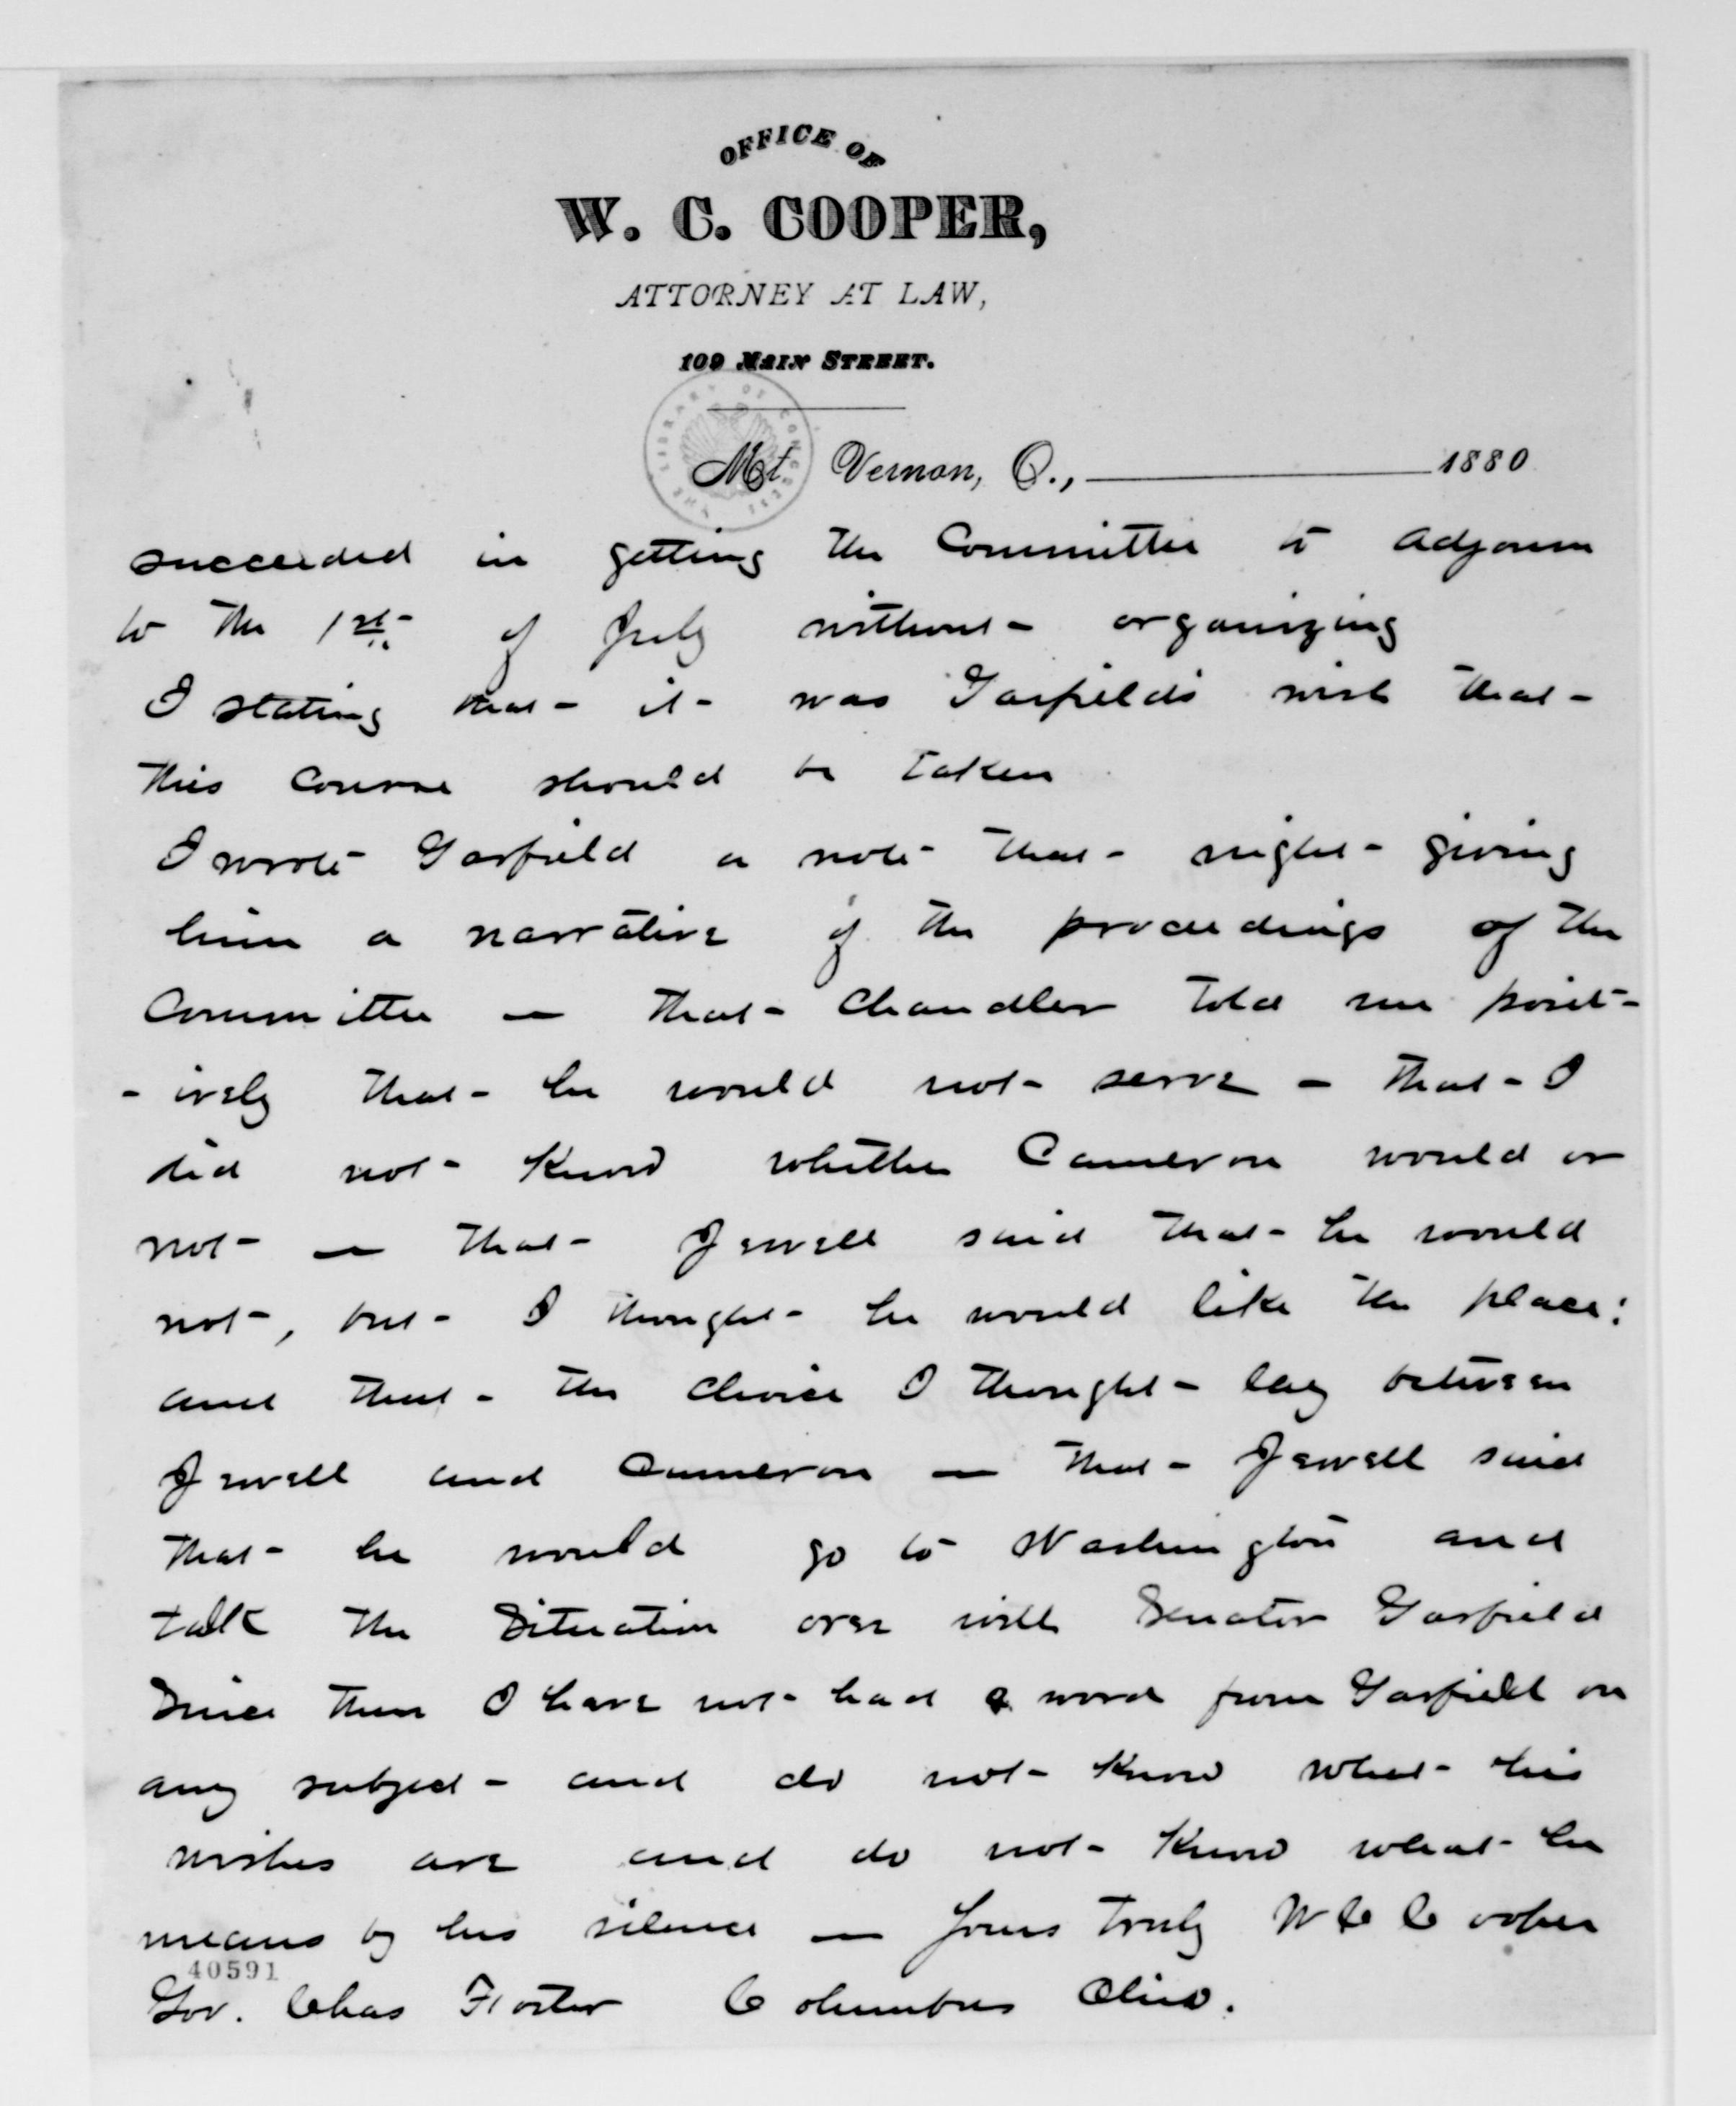 OFFICE OF
W. C. COOPER,
ATTORNEY AT LAW,
109 MAIN STREET.
THE LIBRARY OF CONGRESS
Mt. Vernon, O., 1880
succeeded in getting the Committee to adjourn
to the 1st. of July without organizing
I stating that it was Garfields wish that
this course should be taken
I wrote Garfield a note that night giving
him a narrative of the proceedings of the
Committee — that Chandler told me posit-
-ively that he would not serve — that I
did not know whether Cameron would or
not — that Jewell said that he would
not, but I thought he would like the place;
and that the choice I thought lay between
Jewell and Cameron — that Jewell said
that he would go to Washington and
talk the situation over with Senator Garfield
Since then I have not had a word from Garfield on
any subject and do not know what his
wishes are and do not know what he
means by his silence — Yours truly W C Cooper
40591
Gov. Chas Foster Columbus Ohio.